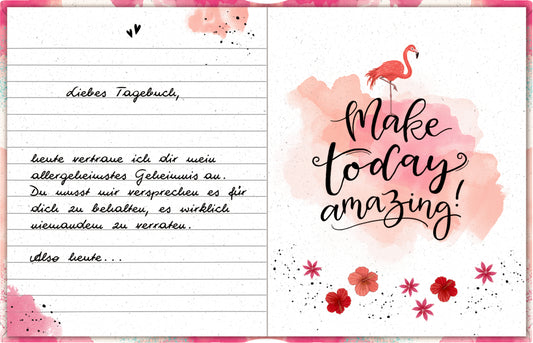 Liebes Tagebuch,
heute vertraue ich dir mein
allergeheimstes Geheimnis an.
Du musst mir versprechen es für
dich zu behalten, es wirklich
niemandem zu verraten.
Also heute...
Make
today
amazing!